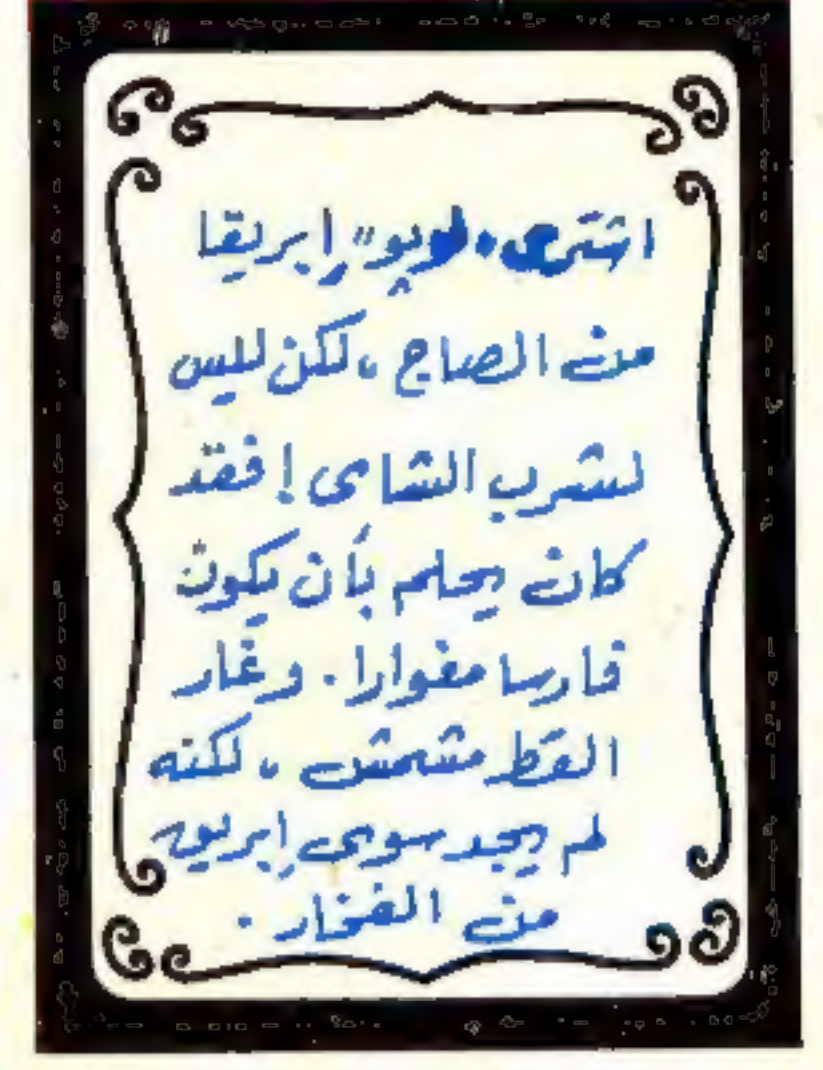 اشترى "لوبو" إبريقا
من الصاج، لكن لليس
لشرب الشاى! فقد
كان يحلم بأن يكون
فارسا مغوارا. وغار
القط مشمش، لكنه
لم يجد سوى إبريق
من الفخار.